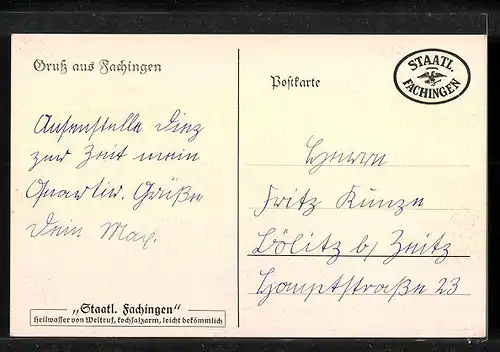 Gruß aus Fachingen
Außenstelle Diez
zur Zeit mein
Quartier. Grüße
Dein Max.
„Staatl. Fachingen“
Heilwasser von Weltruf, kochsalzarm, leicht bekömmlich
Postkarte
STAATL.
FACHINGEN
Herrn
Fritz Kunze
Bölitz b/ Zeitz
Hauptstraße 23